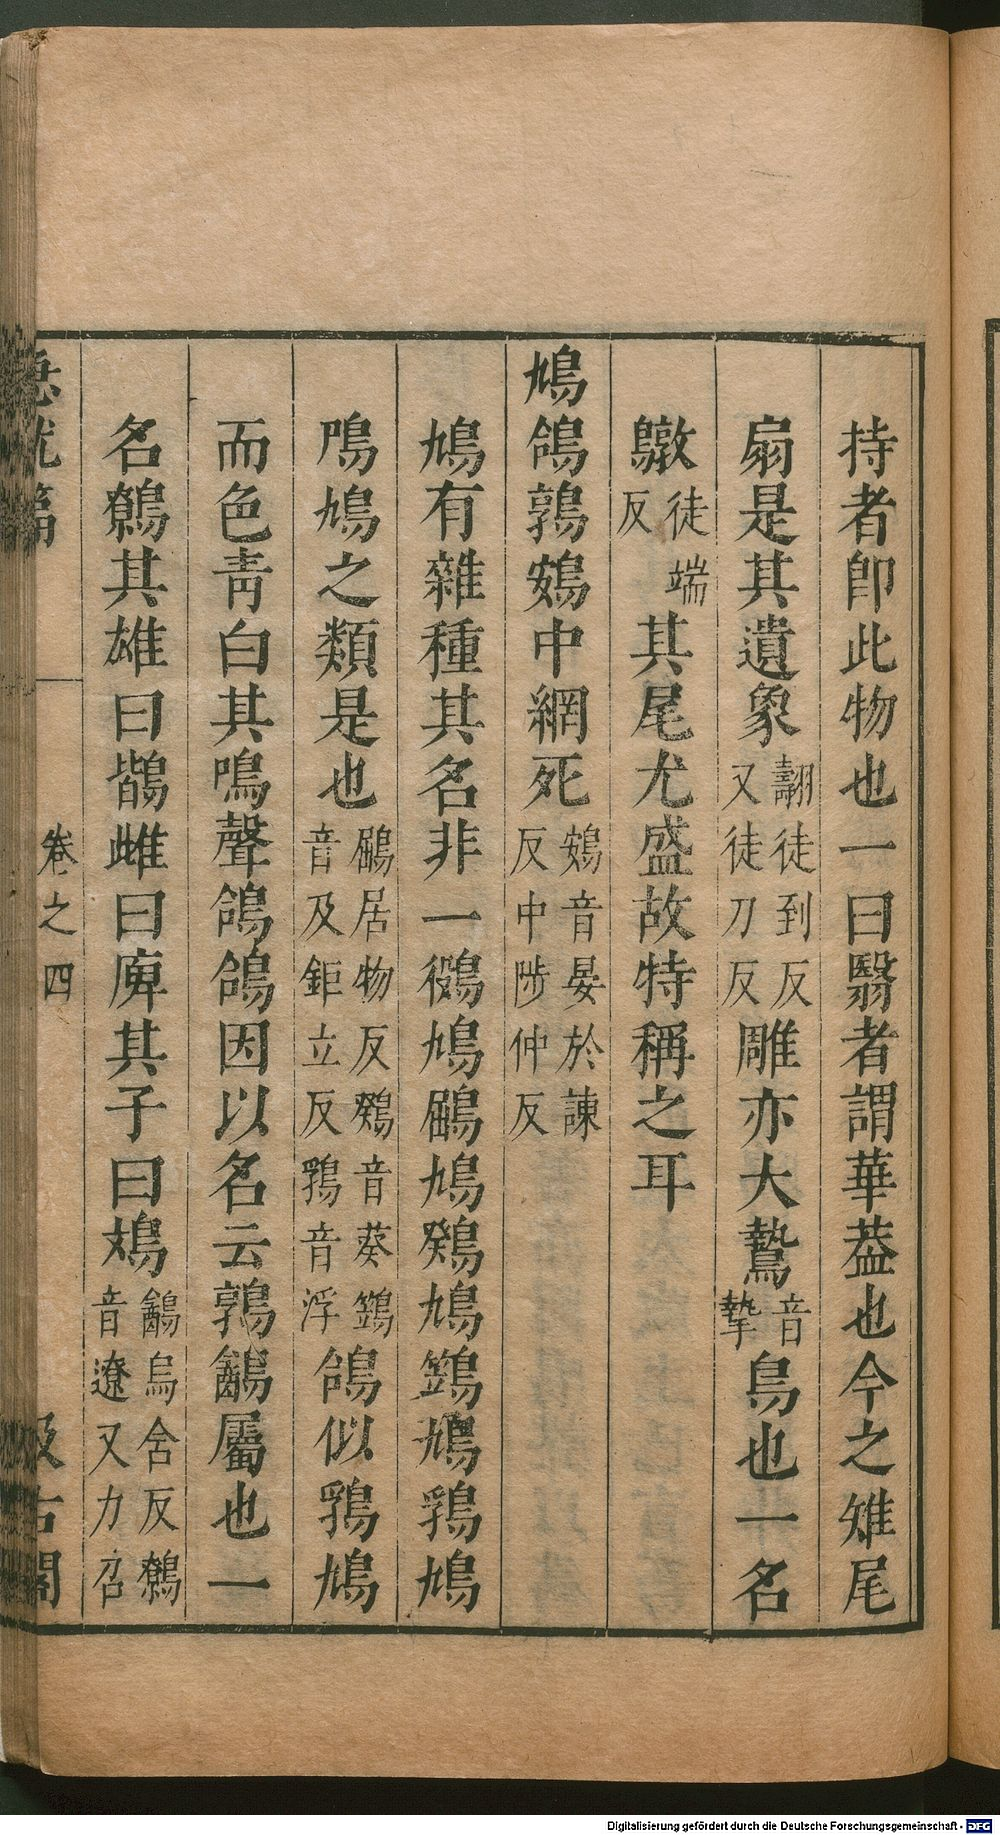 持者卽此物也一曰翳者謂華葢也今之雉尾
扇是其遺象翿徒到反又徒刀反雕亦大鷙音摯鳥也一名
鷻徒端反其尾尤盛故特稱之耳
鳩鴿鶉鴳中網死鴳音晏於諫反中陟仲反
鳩有雜種其名非一鵖鳩鶌鳩鵊鳩鷑鳩鳺鳩
鳲鳩之類是也鶌居物反音葵鷑音及鉅立反音浮鴿似鳩
而色靑白其鳴聲鴿鴿因以名云鶉鶕屬也一
名鷯其雄曰鶛雌曰庳其子曰鳼鶕烏含反鷯音遼又力召
急就篇
卷之四
汲古閣
Digitalisierung gefördert durch die Deutsche Forschungsgemeinschaft - DFG